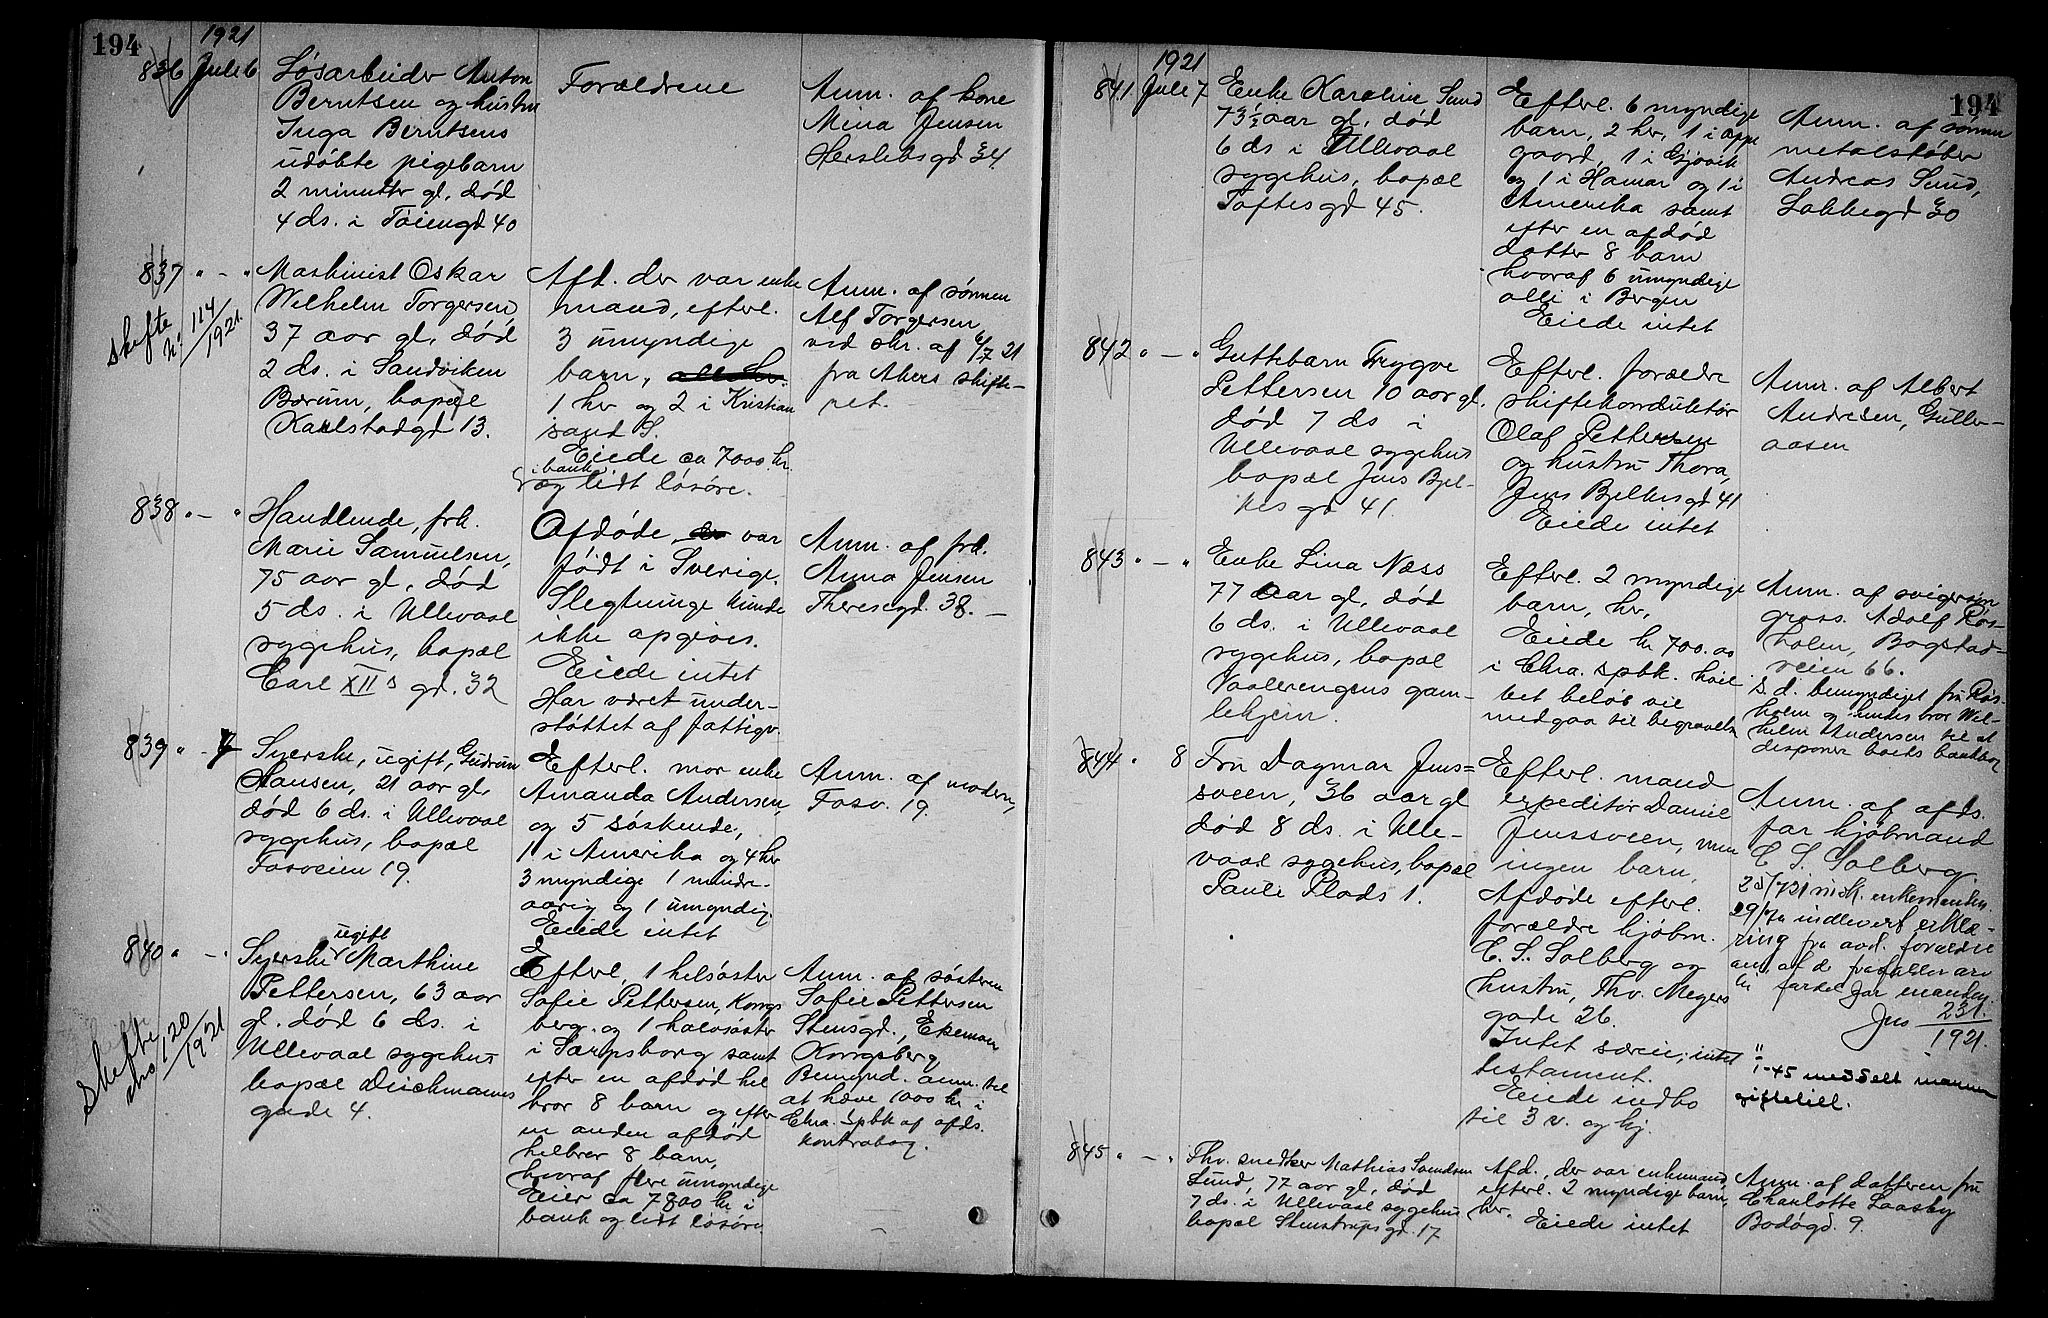 194
1921
836 Juli 6
Løsarbeider Anton
Berntsen og hustru
Inga Berntsens
udøbte pigebarn
2 minutter gl, død
4 ds. i Tøiengd 40
Forældrene
Anm. af kone
Mina Jensen
Herslebsgd 34
837 " - "
Skifte
No 114/1921.
Maskinist Oskar
Wilhelm Torgersen,
37 aar gl, død
2 ds. i Sandviken
Bærum, bopæl
Karlstadgd 13.
Afd. der var enke
mand, efterl.
3 umyndige
barn,
1 hr og 2 i Kristian
sand S.
Eiede ca 7000 kr.
i bank
og lidt løsøre.
Anm. af sønnen
Alf Torgersen
ved skr. af 6/7 21
fra Akers skifte-
ret.
838 " - "
Handlende, frk.
Marie Samuelsen,
75 aar gl, død
5 ds. i Ullevaal
sygehus, bopæl
Carl XII s gd. 32
Afdøde, der var
født i Sverige.
Slegtninge kunde
ikke opgives.
Eiede intet
Har været under-
støttet af fattigv.
Anm. af frk.
Anna Jensen
Theresegd. 38. -
839 " - 7
Syerske, ugift, Gudrun
Hansen, 21 aar gl,
død 6 ds. i Ullevaal
sygehus, bopæl
Fosveien 19.
Efterl. mor enke
Amanda Andersen,
og 5 søskende,
1 i Amerika og 4 hr
3 myndige 1 mindre-
aarig og 1 umyndig.
Eiede intet
Anm. af moderen,
Fosv. 19.
840 " - "
Skifte
No 120/1921
ugift
Syerske Marthine
Pettersen, 63 aar
gl. død 6 ds. i
Ullevaal sygehus
bopæl Deichmanns
gade 4.
Efterl, 1 helsøster
Sofie Pettersen, Kongs
berg. og 1 halvsøster
i Sarpsborg samt
efter en afdød hel
bror 8 barn og efter
en anden afdød
helbror 8 barn,
hvoraf flere umyndige
Eier ca 7800 kr i
bank og lidt løsøre.
Anm. af søsteren
Sofie Pettersen
Stensgd.,
Kongsberg
Bemynd. anm. til
at hæve 1000 kr i
Chra. Spbk af afds.
kontrabog.
194
1921
841 Juli 7
Enke Karoline Sund
73 1/2 aar gl, død
6 ds i Ullevaal
sygehus, bopæl
Toftesgd 45.
Efterl. 6 myndige
barn, 2 hr, 1 i Oppe
gaard, 1 i Gjøvik
og 1 i Hamar og 1 i
Amerika samt
efter en afdød
datter 8 barn
hvoraf 6 umyndige
alle i Bergen
Eiede intet
Anm. af sønnen
metalstøber
Andreas Sund,
Løkkegd 30
842 " - "
Guttebarn Trygve
Pettersen 10 aar gl.
død 7 ds i
Ullevaal sygehus
bopæl Jens Bjel-
kes gd 41.
Efterl. forældre
skiftekonduktør
Olaf Pettersen
og hustru Thora,
Jens Bjelkesgd 41
Eiede intet
Anm. af Albert
Andresen, Guller-
aasen
843 " - "
Enke Lina Næss
77 aar gl, død
6 ds. i Ullevaal
sygehus, bopæl
Vaalerengens gam-
lehjem.
Efterl. 2 myndige
barn, hr,
Eiede kr 700.00
i Chra. spbk. hvil-
ket beløb vil
medgaa til begravelse
Anm. af svigersøn
gross. Adolf Røs-
holm, Bogstad-
veien 66.
S. d. bemyndiget fru Røs-
holm og hendes bror Wil-
helm Andersen til at
disponere boets bankbog
844 " 8
Fru Dagmar Jens-
sveen, 36 aar gl
død 8 ds. i Ulle-
vaal sygehus, bopæl
Pauls Plads 1.
Efterl. mand
expeditør Daniel
Jenssveen, men
ingen barn,
Afdøde efterl.
forældre kjøbm.
C. S. Solberg og
hustru, Thv. Meyers
gade 26.
Intet særeie, intet
testament.
Eiede indbo
til 3 v. og kj.
Anm. af afds.
far kjøbmand
C. S. Solberg.
indlevert erklæ-
ring fra avd. forældre
om, at de frafaller arv
til fordel for manden.
Jns 231/1921.
meddelt
845 " - "
Fhv. snedker Mathias Svendsen
Lund, 77 aar gl, død
7 ds. i Ullevaal sygehus
bopæl Stenstrupsgd. 17
Afd., der var enkemand
efterl. 2 myndige barn,
hr. Eiede intet
Anm. af datteren fru
Charlotte Laasby
Bodøgd. 9.